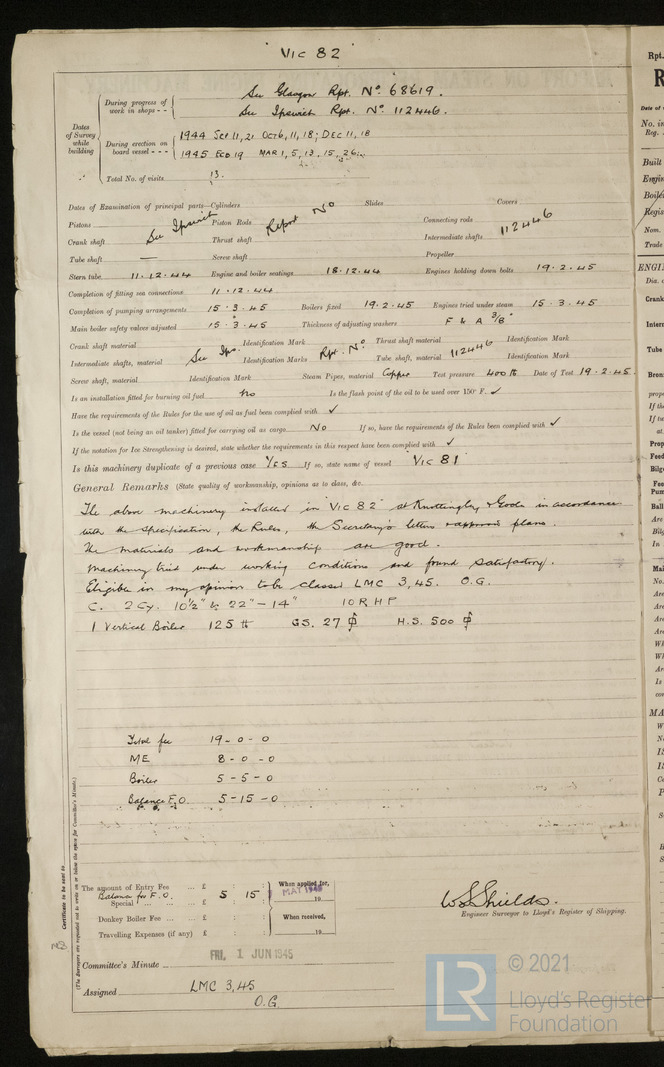 VIC 82
During progress of work in shops - - See Glasgow Rpt. No 68619.
See Ipswich Rpt. No. 112446.
Dates of Survey while building
During erection on board vessel - - - 1944 SEP 11, 21 OCT 6, 11, 18; DEC 11, 18
1945 FEB 19 MAR 1, 5, 13, 15, 26
Total No. of visits 13.
Dates of Examination of principal parts—Cylinders Slides Covers
Pistons Piston Rods Connecting rods
See Ipswich Report No 112446
Crank shaft Thrust shaft Intermediate shafts
Tube shaft — Screw shaft Propeller
Stern tube 11.12.44 Engine and boiler seatings 18.12.44 Engines holding down bolts 19.2.45
Completion of fitting sea connections 11.12.44
Completion of pumping arrangements 15.3.45 Boilers fixed 19.2.45 Engines tried under steam 15.3.45
Main boiler safety valves adjusted 15.3.45 Thickness of adjusting washers F & A 3/8"
Crank shaft material Identification Mark Thrust shaft material Identification Mark
See Ips. Rpt. No 112446
Intermediate shafts, material Identification Marks Tube shaft, material Identification Mark
Screw shaft, material Identification Mark Steam Pipes, material Copper Test pressure 400 lb Date of Test 19.2.45.
Is an installation fitted for burning oil fuel No Is the flash point of the oil to be used over 150° F. ✓
Have the requirements of the Rules for the use of oil as fuel been complied with ✓
Is the vessel (not being an oil tanker) fitted for carrying oil as cargo No If so, have the requirements of the Rules been complied with ✓
If the notation for Ice Strengthening is desired, state whether the requirements in this respect have been complied with ✓
Is this machinery duplicate of a previous case YES If so, state name of vessel "VIC 81"
General Remarks (State quality of workmanship, opinions as to class, &c.
The above machinery installed in "VIC 82" at Knottingley & Goole in accordance
with the specification, the Rules, the Secretary's letters & approved plans.
The materials and workmanship are good.
Machinery tried under working conditions and found satisfactory.
Eligible in my opinion to be classed LMC 3,45. O.G.
C. 2 Cy. 10½" & 22" – 14" 10 RHP
1 Vertical Boiler 125 lb GS. 27 H.S. 500
Total fee 19 - 0 - 0
ME 8 - 0 - 0
Boiler 5 - 5 - 0
Balance F.O. 5 - 15 - 0
Certificate to be sent to
(The Surveyors are requested not to write on or below the space for Committee's Minute.)
The amount of Entry Fee ... £ : : When applied for,
Balance for F.O.
Special ... ... £ 5 : 15 : MAY 1945 19
Donkey Boiler Fee ... ... £ : : When received,
Travelling Expenses (if any) £ : : 19
W S Shields.
Engineer Surveyor to Lloyd's Register of Shipping.
Committee's Minute FRI. 1 JUN 1945
Assigned LMC 3,45
O.G.
LR
© 2021
Lloyd's Register
Foundation
Rpt.